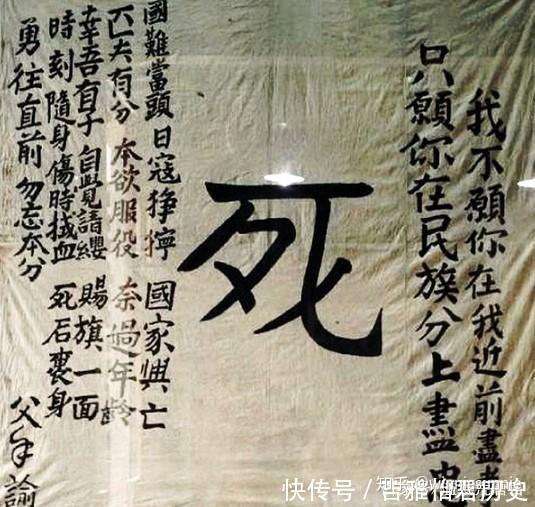 我不願你在我近前盡孝
只願你在民族分上盡忠
死
國難當頭 日寇猙獰 國家興亡
匹夫有分 本欲服役 奈過年齡
幸吾有子 自覺請纓 賜旗一面
時刻隨身 傷時拭血 死后裹身
勇往直前 勿忘本分
父手諭
知乎
快传号／